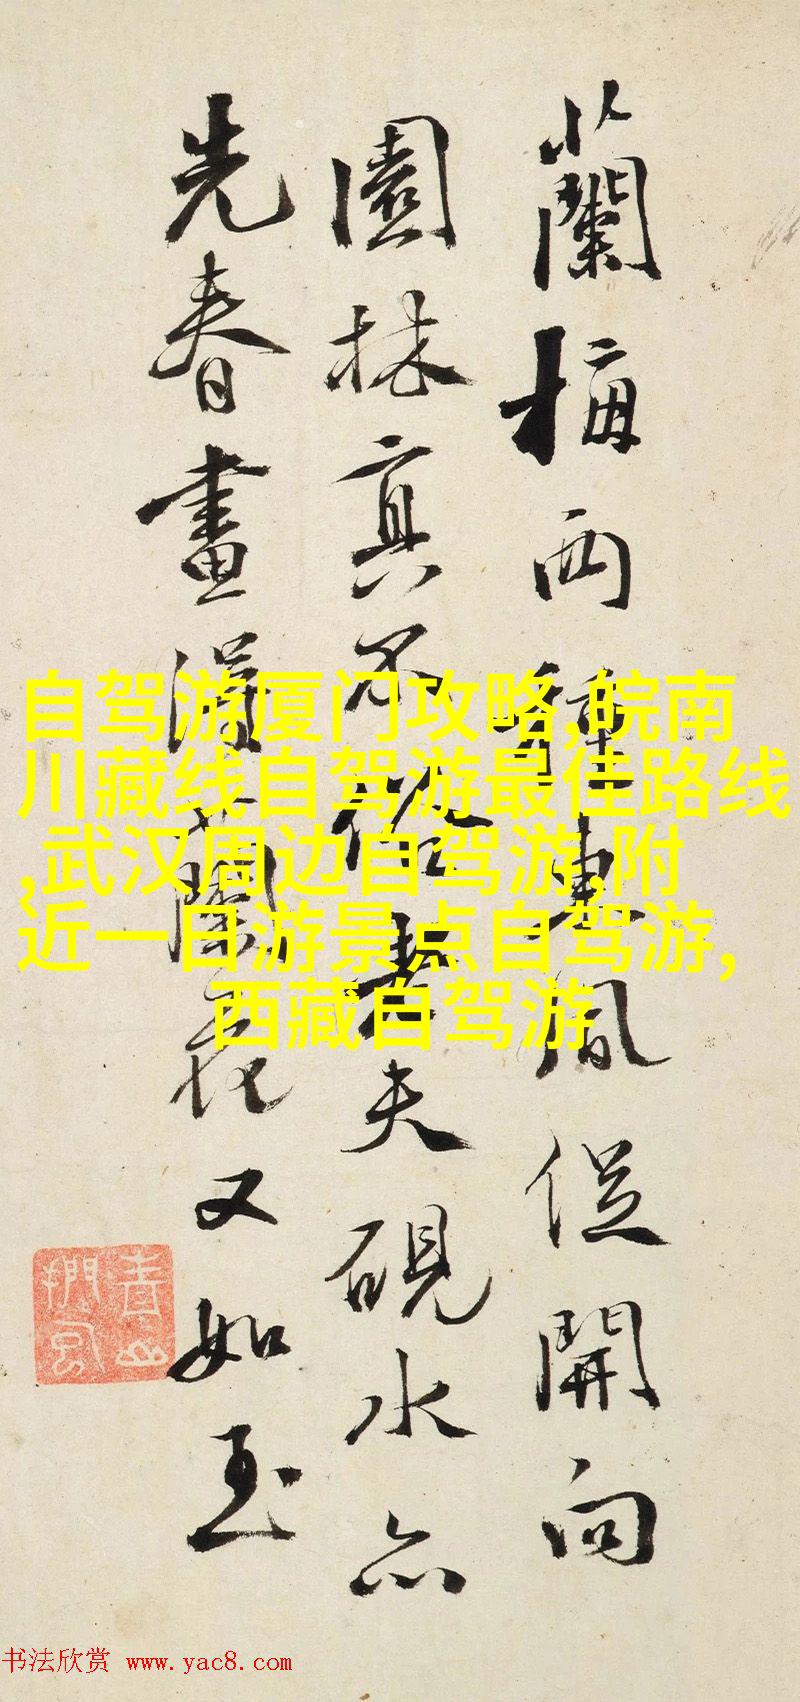 蘭梅兩種東風促開向
園林真不俗老夫硯水亦
先春畫得蘭花又如玉
自驾游厦门攻略,皖南
川藏线自驾游最佳路线
,武汉周边自驾游,附
近一日游景点自驾游,
西藏自驾游
书法欣赏 www.yac8.com